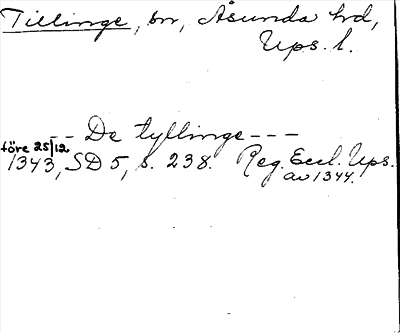 Tillinge, sn, Åsunda hd,
Ups. l.
-- De tyllinge ---
före 25/12
1343, SD 5, s. 238. Reg. Eccl. Ups.
av 1344.